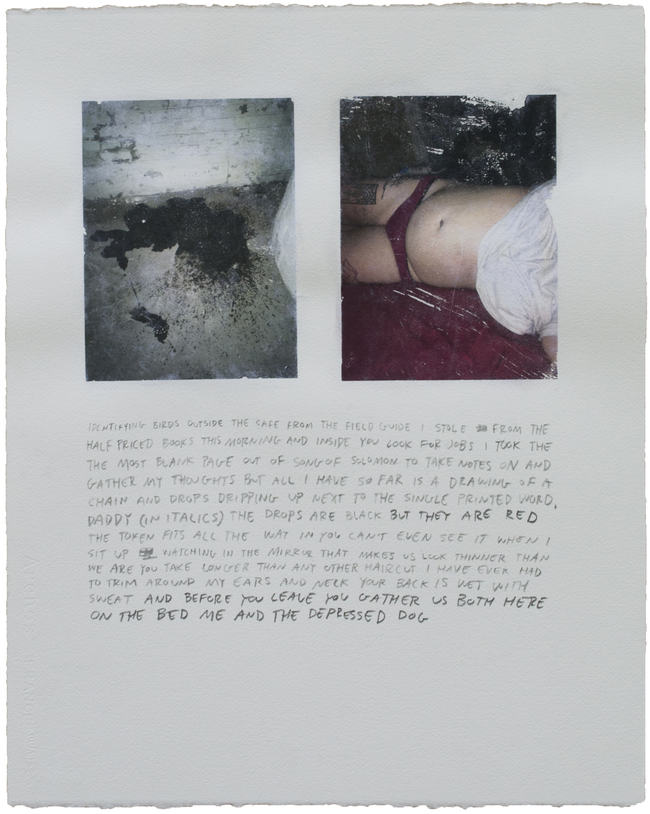 IDENTIFYING BIRDS OUTSIDE THE CAFE FROM THE FIELD GUIDE I STOLE FROM THE
HALF PRICED BOOKS THIS MORNING AND INSIDE YOU LOOK FOR JOBS I TOOK THE
THE MOST BLANK PAGE OUT OF SONG OF SOLOMON TO TAKE NOTES ON AND
GATHER MY THOUGHTS BUT ALL I HAVE SO FAR IS A DRAWING OF A
CHAIN AND DROPS DRIPPING UP NEXT TO THE SINGLE PRINTED WORD,
DADDY (IN ITALICS) THE DROPS ARE BLACK BUT THEY ARE RED
THE TOKEN FITS ALL THE WAY IN YOU CAN'T EVEN SEE IT WHEN I
SIT UP WATCHING IN THE MIRROR THAT MAKES US LOOK THINNER THAN
WE ARE YOU TAKE LONGER THAN ANY OTHER HAIRCUT I HAVE EVER HAD
TO TRIM AROUND MY EARS AND NECK YOUR BACK IS WET WITH
SWEAT AND BEFORE YOU LEAVE YOU GATHER US BOTH HERE
ON THE BED ME AND THE DEPRESSED DOG